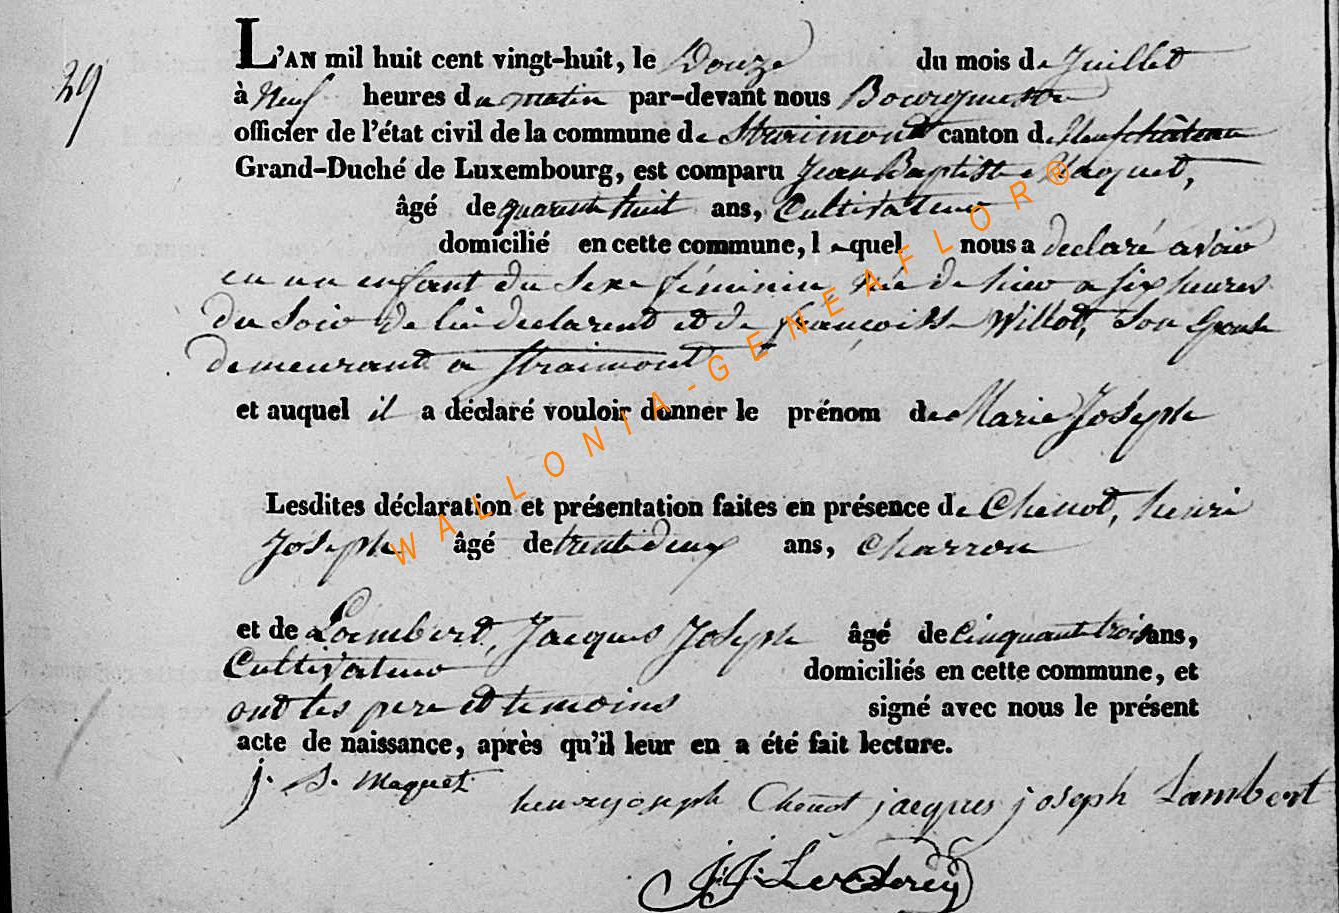 29
L'AN mil huit cent vingt-huit, le Douze du mois de Juillet
à Neuf heures du matin par-devant nous Bourgmestre
officier de l'état civil de la commune de Straimont canton de Neufchâteau
Grand-Duché de Luxembourg, est comparu Jean Baptiste Maquet,
âgé de quarante huit ans, Cultivateur
domicilié en cette commune, lequel nous a declaré avoir
eu un enfant du Sexe féminin née de hier a six heures
du Soir de lui declarent et de françoisse Willot, Son Epouse
demeurant a Straimont
et auquel il a déclaré vouloir donner le prénom de Marie Joseph
Lesdites déclaration et présentation faites en présence de Chenot, henri
Joseph âgé de trente deux ans, Charron
et de Lambert, Jacques Joseph âgé de Cinquante trois ans,
Cultivateur domiciliés en cette commune, et
ont les pere et temoins signé avec nous le présent
acte de naissance, après qu'il leur en a été fait lecture.
j. B. Maquet henry joseph Chenot jacques joseph Lambert
J. J.
WALLONIA-GENEAFLOR®